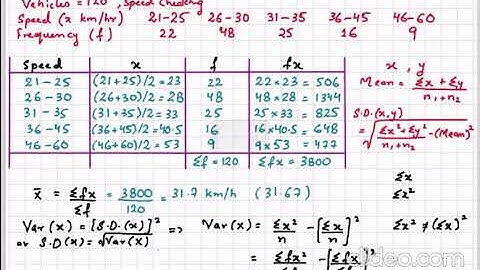 Vehicles = 120, Speed Checking
Speed (x km/hr) 21-25 26-30 31-35 36-45 46-60
Frequency (f) 22 48 25 16 9
Speed x f fx
21-25 (21+25)/2 = 23 22 22×23 = 506
26-30 (26+30)/2 = 28 48 48×28 = 1344
31-35 (31+35)/2 = 33 25 25×33 = 825
36-45 (36+45)/2 = 40.5 16 16×40.5 = 648
46-60 (46+60)/2 = 53 9 9×53 = 477
Σf = 120 Σfx = 3800
x, y
Mean = Σx + Σy / n₁ + n₂
S.D.(x,y)
= √(Σx² + Σy² / n₁ + n₂ - (Mean)²)
Σx
Σx²
Σx² ≠ (Σx)²
x̄ = Σfx / Σf = 3800 / 120 = 31.7 km/h (31.67)
Var(x) = [S.D.(x)]² ⇒ Var(x) = Σx² / n - [Σx / n]²
or S.D(x) = √Var(x)
= Σfx² / Σf - [Σfx / Σf]²